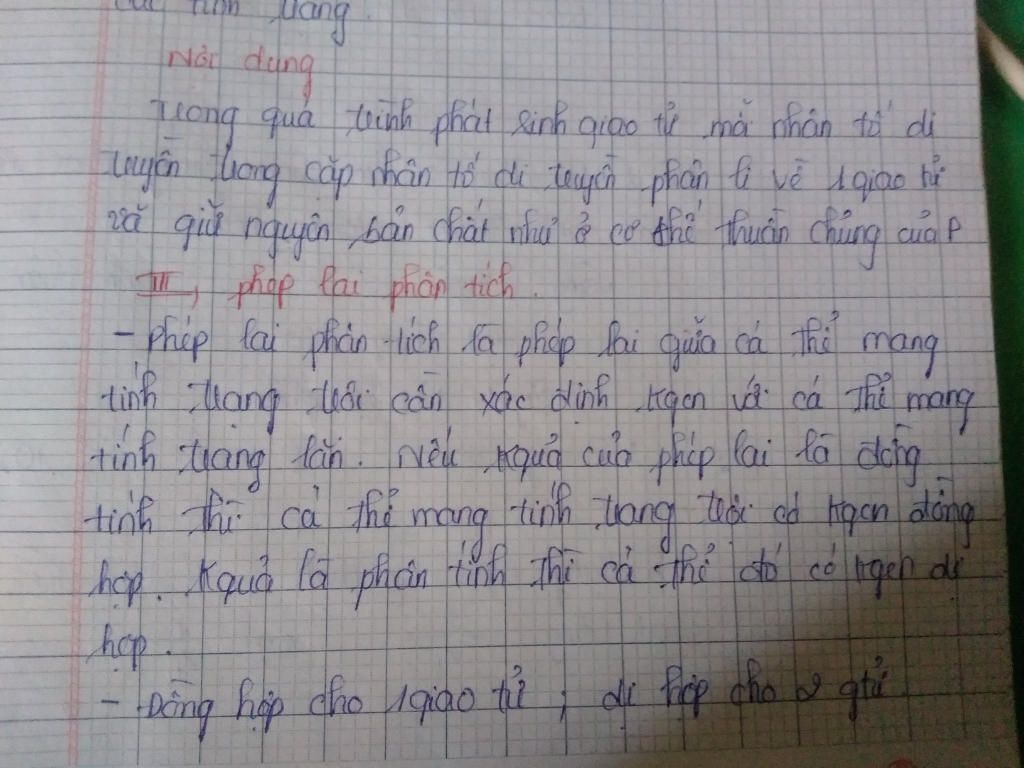 các tính trạng.
Nội dung
Trong quá trình phát sinh giao tử mà nhân tố di
truyền trong cặp nhân tố di truyền phân li về 1 giao tử
và giữ nguyên bản chất như ở cơ thể thuần chủng của P
III, phép lai phân tích.
- Phép lai phân tích là phép lai giữa cá thể mang
tính trạng trội cần xác định kgen với cá thể mang
tính trạng lặn. Nếu kquả của phép lai là đồng
tính thì cá thể mang tính trạng trội có kgen đồng
hợp. Kquả là phân tính thì cá thể đó có kgen dị
hợp.
- Đồng hợp cho 1 giao tử, dị hợp cho 2 gtử